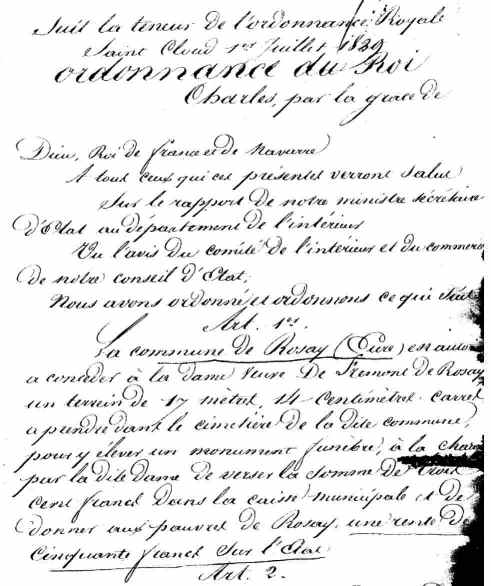 Suit la teneur de l'ordonnance Royale
Saint Cloud 1er Juillet 1829
ordonnance du Roi
Charles, par la grace de
Dieu, Roi de france et de Navarre
A tous ceux qui ces présentes verront salut
Sur le rapport de notre ministre secrétaire
d'Etat au département de l'intérieur
Vu l'avis du comité de l'intérieur et du commerce
de notre conseil d'Etat,
Nous avons ordonné et ordonnons ce qui suit
Art. 1er.
La commune de Rosay (Eure) est autor
a concéder à la dame Veuve De Fremont de Rosay
un terrein de 17 mètres, 14 centimètres carrés
a prendre dans le cimetière de la dite commune,
pour y élever un monument funèbre, à la charge
par la dite dame de verser la somme de trois
cent francs dans la caisse municipale et de
donner aux pauvres de Rosay, une rente de
Cinquante francs sur l'Etat
Art. 2.